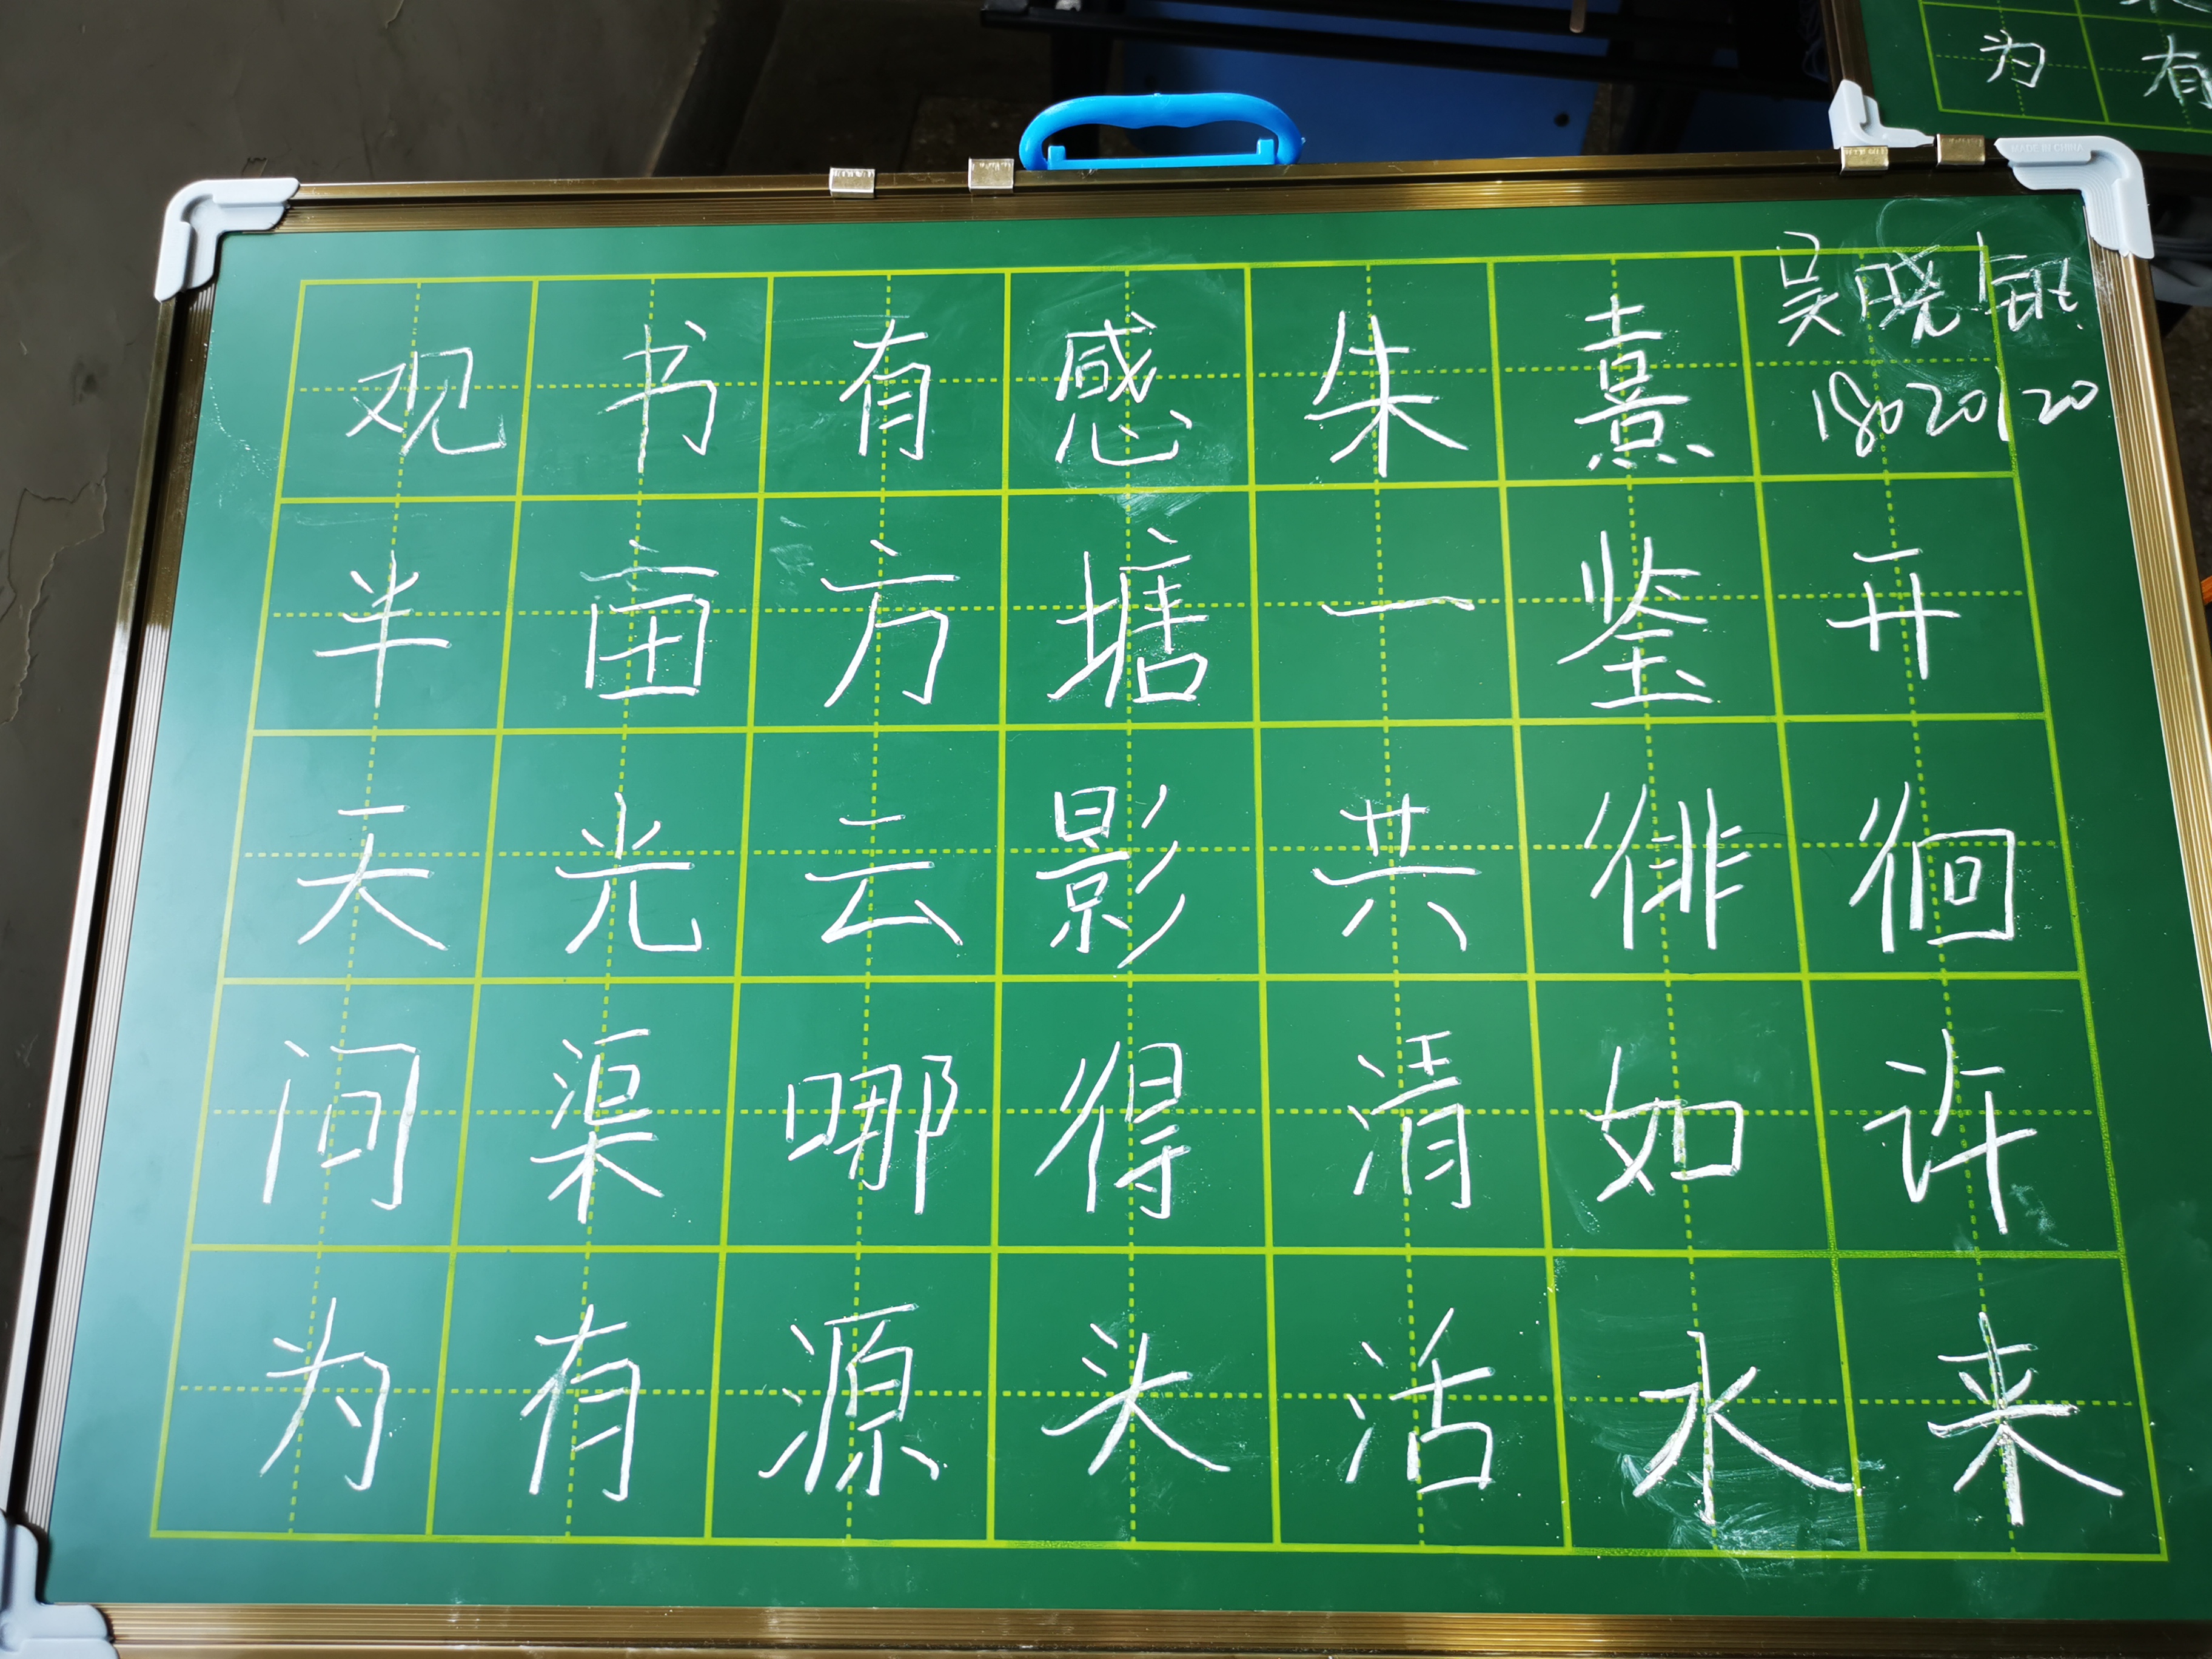 为 有
MADE IN CHINA
吴晓
观书有感 朱熹
18020120
半亩方塘一鉴开
天光云影共徘徊
问渠哪得清如许
为有源头活水来